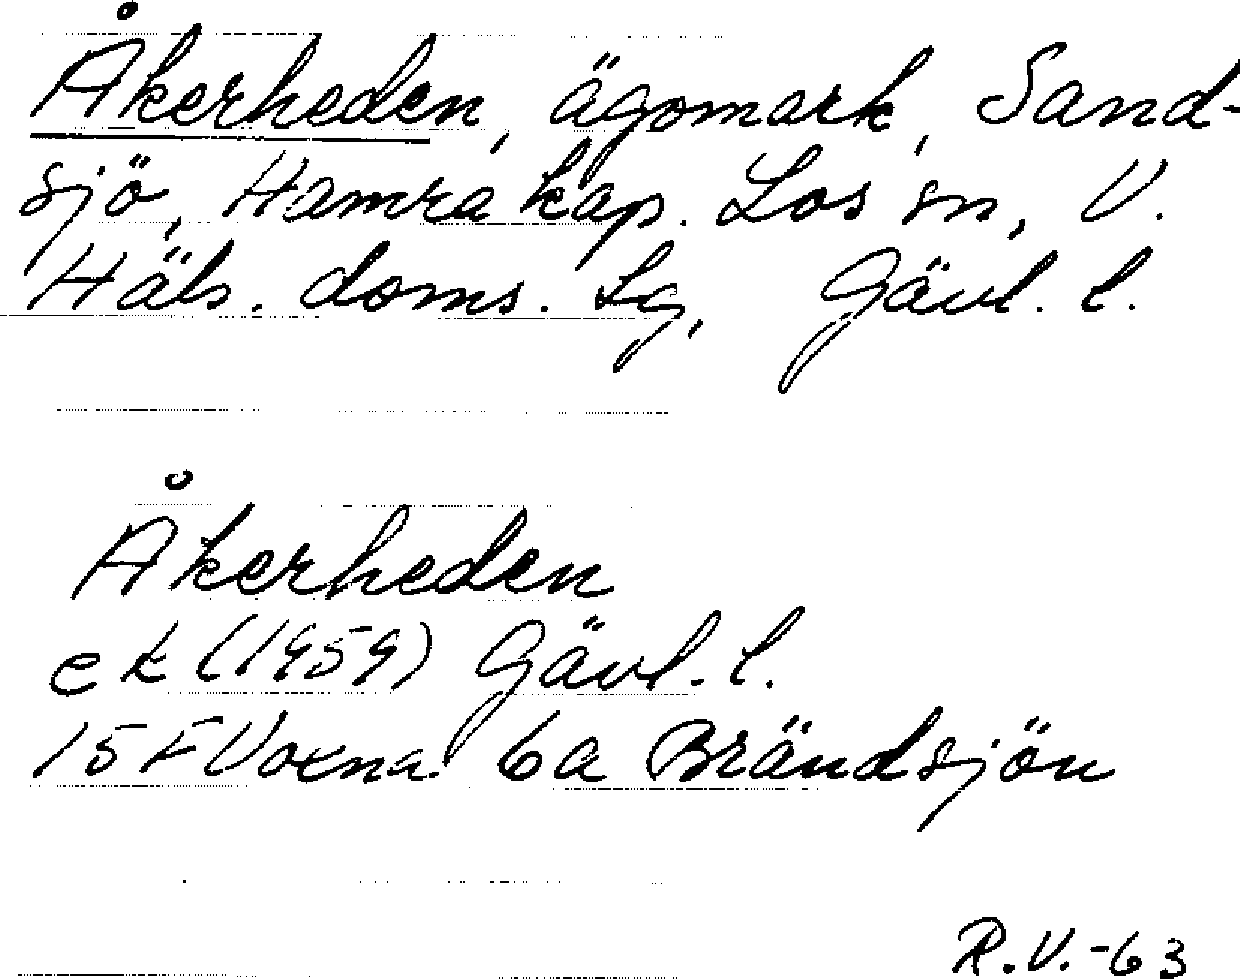 Åkerheden, ägomark, Sand-
sjö, Hamra kap. Los sn, V.
Häls. doms. Lg, Gävl. l.
Åkerheden
ek (1959) Gävl. l.
15 F Voxna 6a Brändsjön
R.V.-63